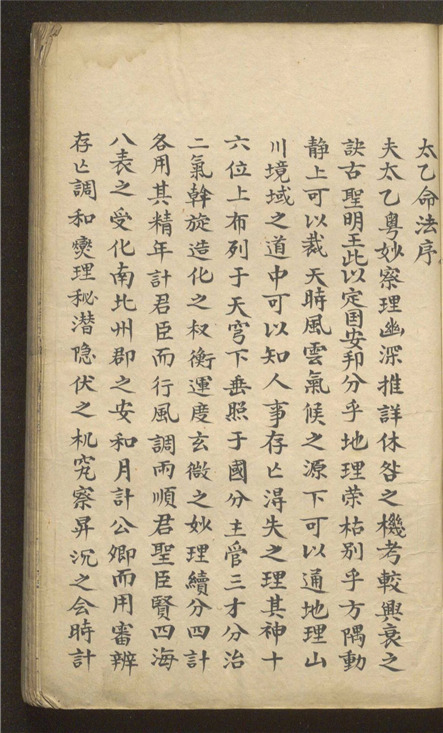 太乙命法序
夫太乙粤妙察理幽深推詳休咎之機考較興衰之
訣古聖明王此以定国安邦分乎地理荣枯别乎方隅動
静上可以裁天時風雲氣候之源下可以通地理山
川境域之道中可以知人事存亾淂失之理其神十
六位上布列于天穹下垂照于國分主管三才分治
二氣斡旋造化之权衡運度玄微之妙理續分四計
各用其精年計君臣而行風調雨順君聖臣賢四海
八表之受化南北州郡之安和月計公卿而用審辨
存亾調和燮理秘潛隐伏之机究察昇沉之会時計